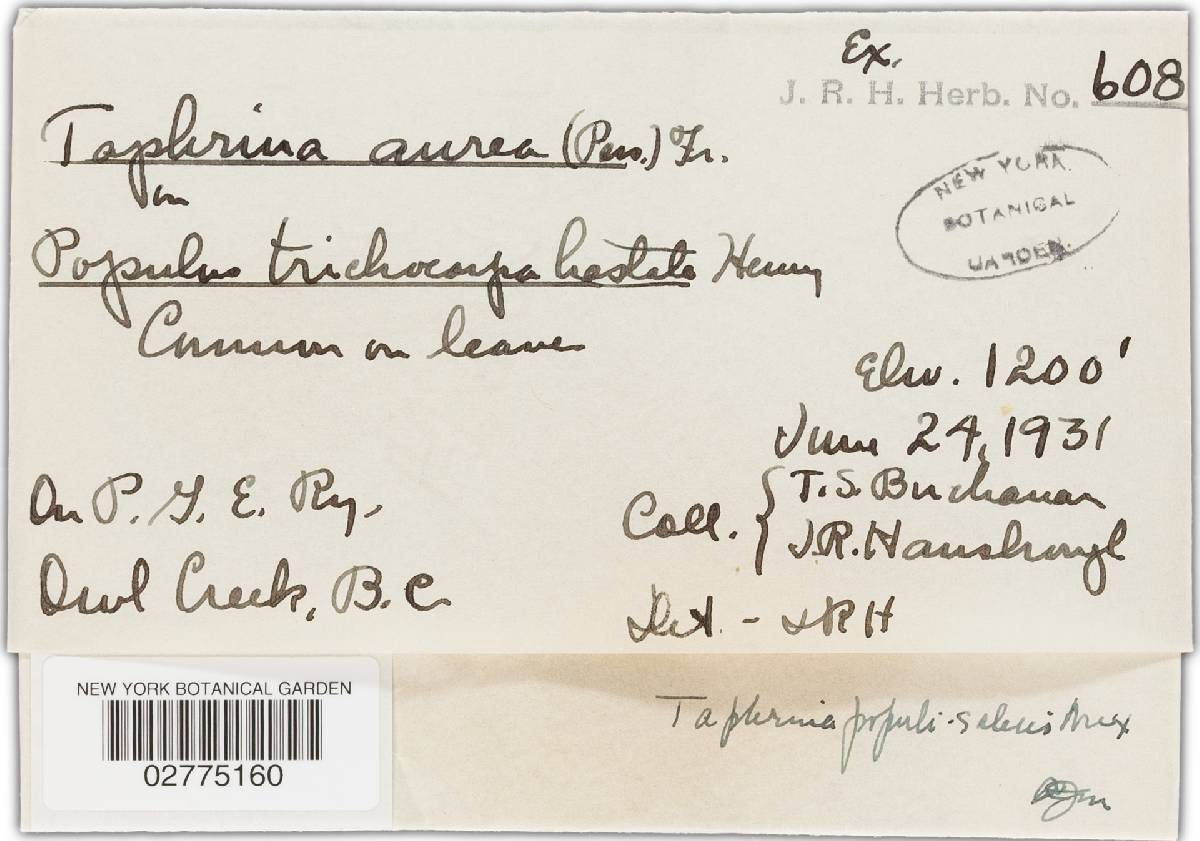 Ex.
J. R. H. Herb. No. 608
Taphrina aurea (Pers.) Fr.
on
Populus trichocarpa hastata Henry
NEW YORK
BOTANICAL
GARDEN.
Common on leaves
Elev. 1200'
June 24, 1931
On P. G. E. Ry.
Owl Creek, B.C.
Coll. { T.S. Buchanan
J.R. Hansbrough
Det. - JRH
NEW YORK BOTANICAL GARDEN
02775160
Taphrina populi-salicis Mix